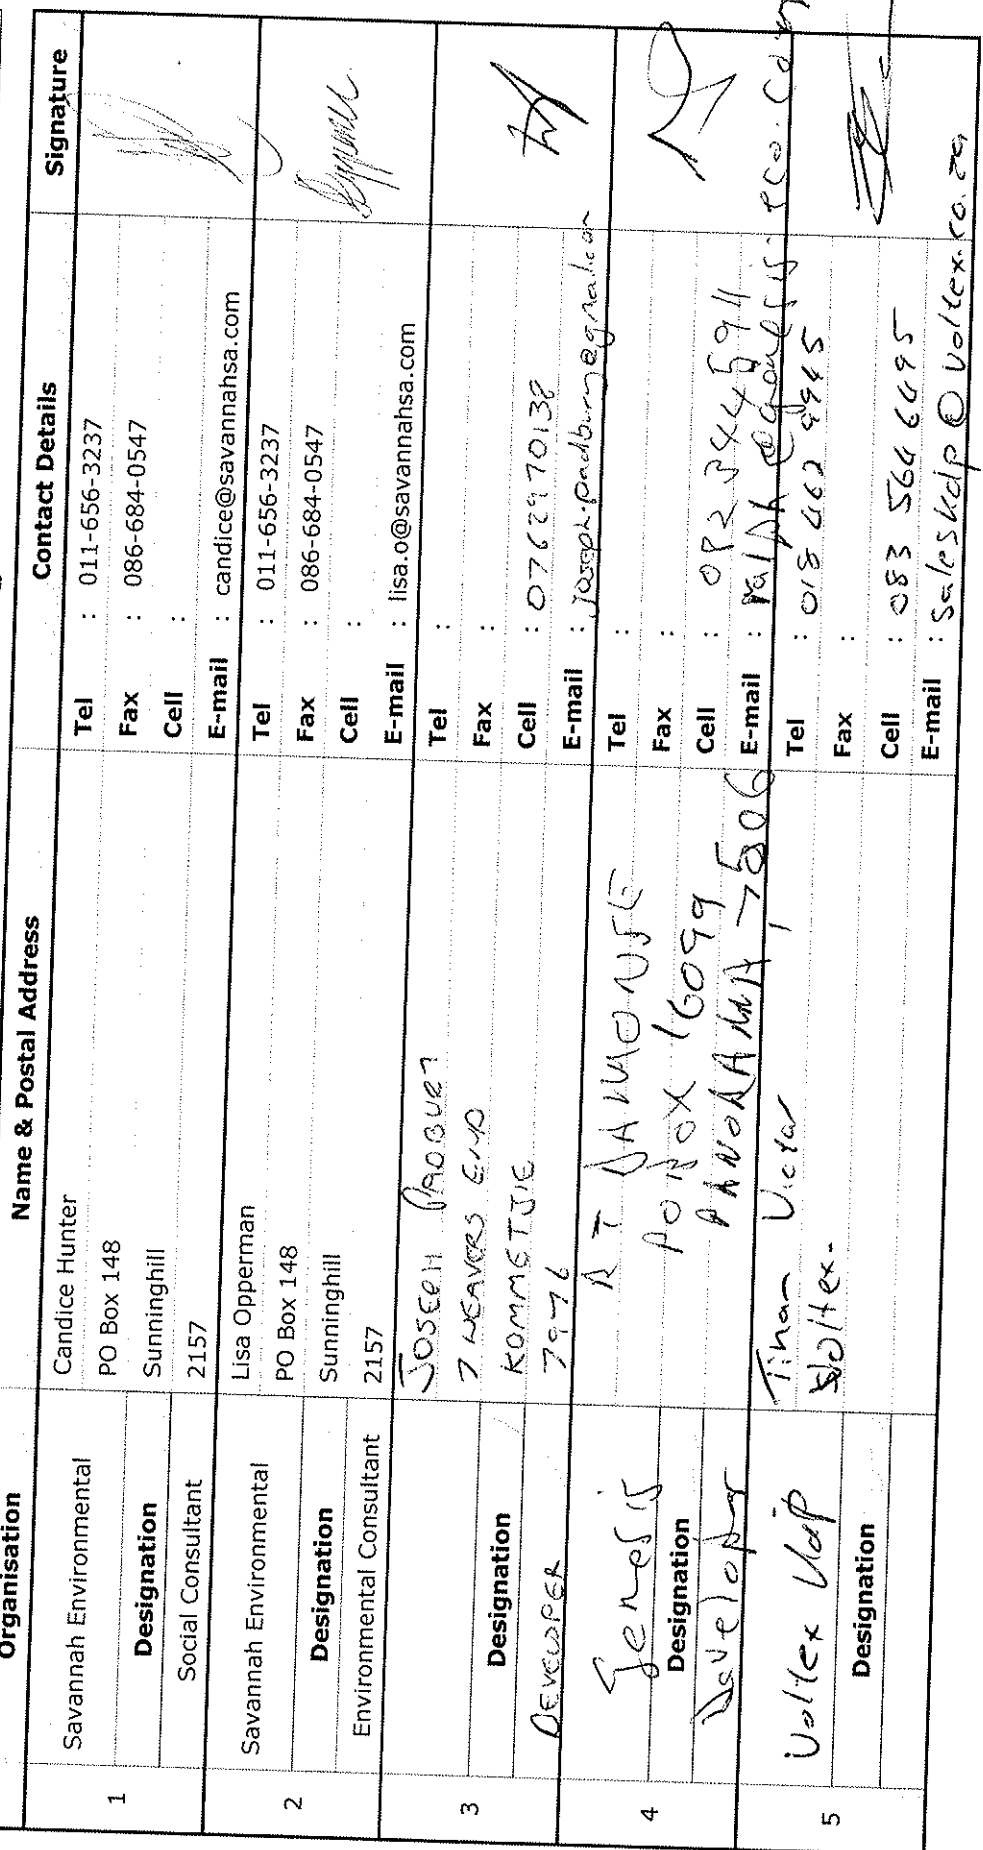 Organisation
Name & Postal Address
Contact Details
Signature
1
Savannah Environmental
Designation
Social Consultant
Candice Hunter
PO Box 148
Sunninghill
2157
Tel : 011-656-3237
Fax : 086-684-0547
Cell :
E-mail : candice@savannahsa.com
2
Savannah Environmental
Designation
Environmental Consultant
Lisa Opperman
PO Box 148
Sunninghill
2157
Tel : 011-656-3237
Fax : 086-684-0547
Cell :
E-mail : lisa.o@savannahsa.com
3
Designation
DEVELOPER
JOSEPH PADBURY
7 WEAVERS END
KOMMETJIE
7976
Tel :
Fax :
Cell : 0762970138
E-mail : joseph.padbury@gmail.com
4
Genesis
Designation
Developer
PO BOX 16099
PANORAMA, 7506
Tel :
Fax :
Cell :
E-mail : ralph@genesis-eco.com
5
Voltex Kdp
Designation
Tihan Victor
Voltex.
Tel :
Fax :
Cell : 083 566 6695
E-mail : saleskdp@voltex.co.za